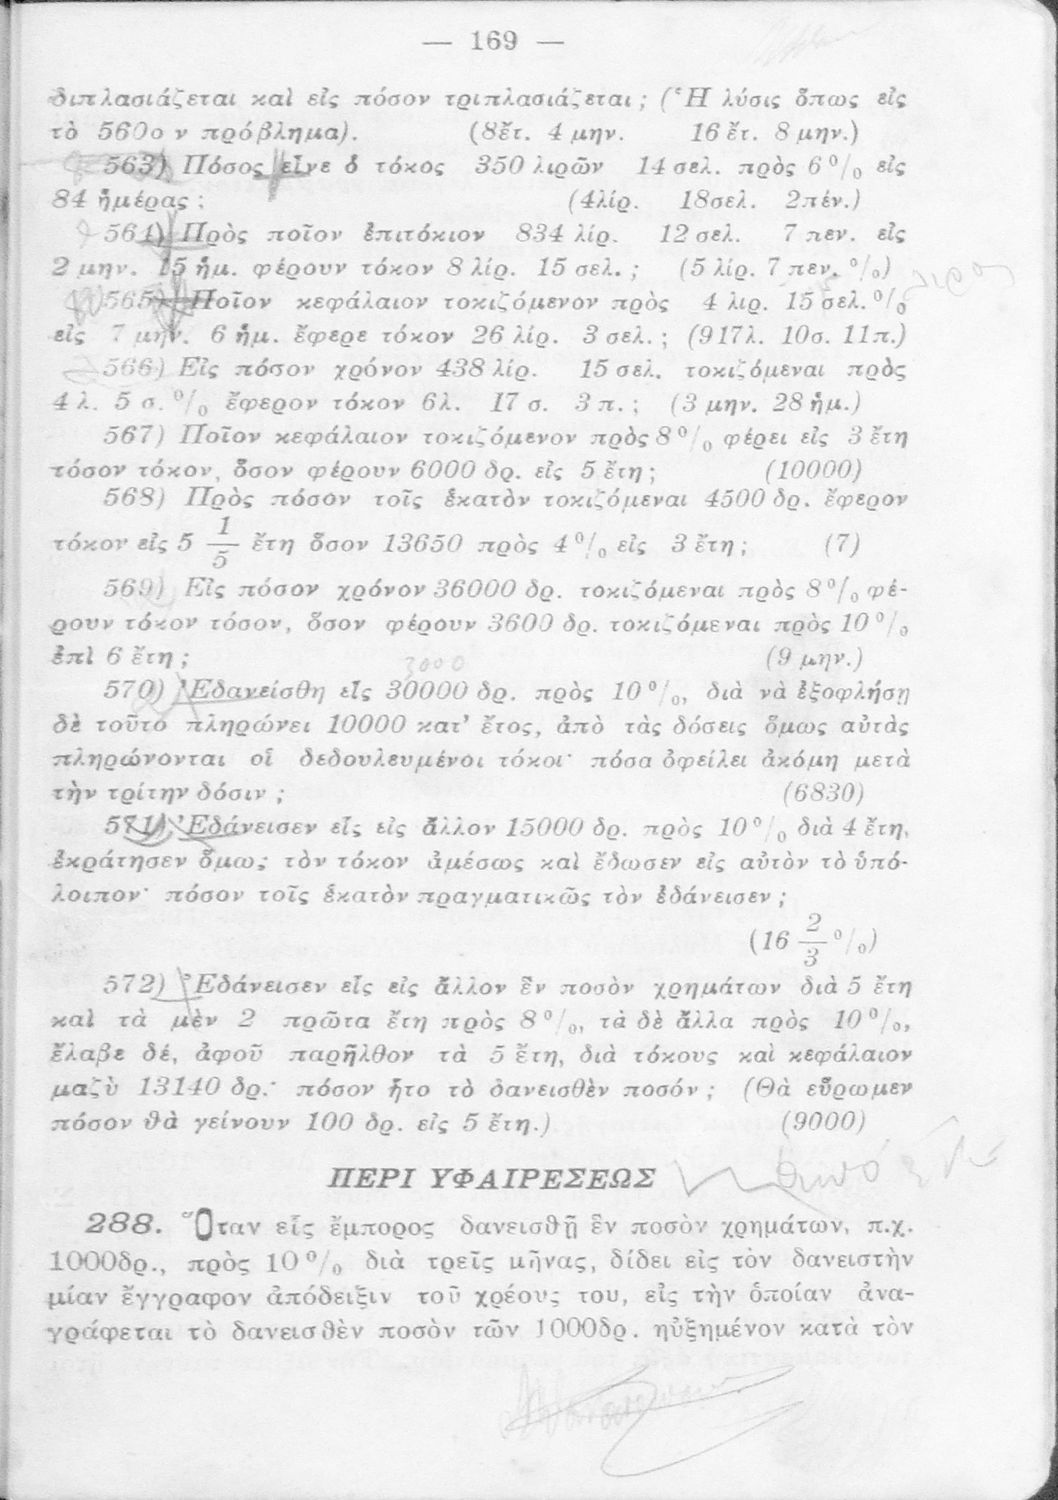 — 169 —
διπλασιάζεται καὶ εἰς πόσον τριπλασιάζεται; (Ἡ λύσις ὅπως εἰς
τὸ 560ον πρόβλημα). (8ἔτ. 4 μην. 16 ἔτ. 8 μην.)
563) Πόσος εἶνε ὁ τόκος 350 λιρῶν 14 σελ. πρὸς 6 % εἰς
84 ἡμέρας; (4λίρ. 18σελ. 2πέν.)
564) Πρὸς ποῖον ἐπιτόκιον 834 λίρ. 12 σελ. 7 πεν. εἰς
2 μην. 15 ἡμ. φέρουν τόκον 8 λίρ. 15 σελ.; (5 λίρ. 7 πεν. %)
565) Ποῖον κεφάλαιον τοκιζόμενον πρὸς 4 λιρ. 15 σελ. %
εἰς 7 μην. 6 ἡμ. ἔφερε τόκον 26 λίρ. 3 σελ.; (917λ. 10σ. 11π.)
566) Εἰς πόσον χρόνον 438 λίρ. 15 σελ. τοκιζόμεναι πρὸς
4 λ. 5 σ. % ἔφερον τόκον 6λ. 17 σ. 3 π.; (3 μην. 28 ἡμ.)
567) Ποῖον κεφάλαιον τοκιζόμενον πρὸς 8 % φέρει εἰς 3 ἔτη
τόσον τόκον, ὅσον φέρουν 6000 δρ. εἰς 5 ἔτη; (10000)
568) Πρὸς πόσον τοῖς ἑκατὸν τοκιζόμεναι 4500 δρ. ἔφερον
τόκον εἰς 5 1/5 ἔτη ὅσον 13650 πρὸς 4 % εἰς 3 ἔτη; (7)
569) Εἰς πόσον χρόνον 36000 δρ. τοκιζόμεναι πρὸς 8 % φέ-
ρουν τόκον τόσον, ὅσον φέρουν 3600 δρ. τοκιζόμεναι πρὸς 10 %
ἐπὶ 6 ἔτη; (9 μην.)
3000
570) Ἐδανείσθη εἷς 30000 δρ. πρὸς 10 %, διὰ νὰ ἐξοφλήσῃ
δὲ τοῦτο πληρώνει 10000 κατ' ἔτος, ἀπὸ τὰς δόσεις ὅμως αὐτὰς
πληρώνονται οἱ δεδουλευμένοι τόκοι· πόσα ὀφείλει ἀκόμη μετὰ
τὴν τρίτην δόσιν; (6830)
571) Ἐδάνεισεν εἷς εἰς ἄλλον 15000 δρ. πρὸς 10 % διὰ 4 ἔτη,
ἐκράτησεν ὅμως τὸν τόκον ἀμέσως καὶ ἔδωσεν εἰς αὐτὸν τὸ ὑπό-
λοιπον· πόσον τοῖς ἑκατὸν πραγματικῶς τὸν ἐδάνεισεν;
(16 2/3 %)
572) Ἐδάνεισεν εἷς εἰς ἄλλον ἓν ποσὸν χρημάτων διὰ 5 ἔτη
καὶ τὰ μὲν 2 πρῶτα ἔτη πρὸς 8 %, τὰ δὲ ἄλλα πρὸς 10 %,
ἔλαβε δέ, ἀφοῦ παρῆλθον τὰ 5 ἔτη, διὰ τόκους καὶ κεφάλαιον
μαζὺ 13140 δρ.· πόσον ἦτο τὸ δανεισθὲν ποσόν; (Θὰ εὕρωμεν
πόσον θὰ γείνουν 100 δρ. εἰς 5 ἔτη.) (9000)
ΠΕΡΙ ΥΦΑΙΡΕΣΕΩΣ
288. Ὅταν εἷς ἔμπορος δανεισθῇ ἓν ποσὸν χρημάτων, π.χ.
1000δρ., πρὸς 10 % διὰ τρεῖς μῆνας, δίδει εἰς τὸν δανειστὴν
μίαν ἔγγραφον ἀπόδειξιν τοῦ χρέους του, εἰς τὴν ὁποίαν ἀνα-
γράφεται τὸ δανεισθὲν ποσὸν τῶν 1000δρ. ηὐξημένον κατὰ τὸν